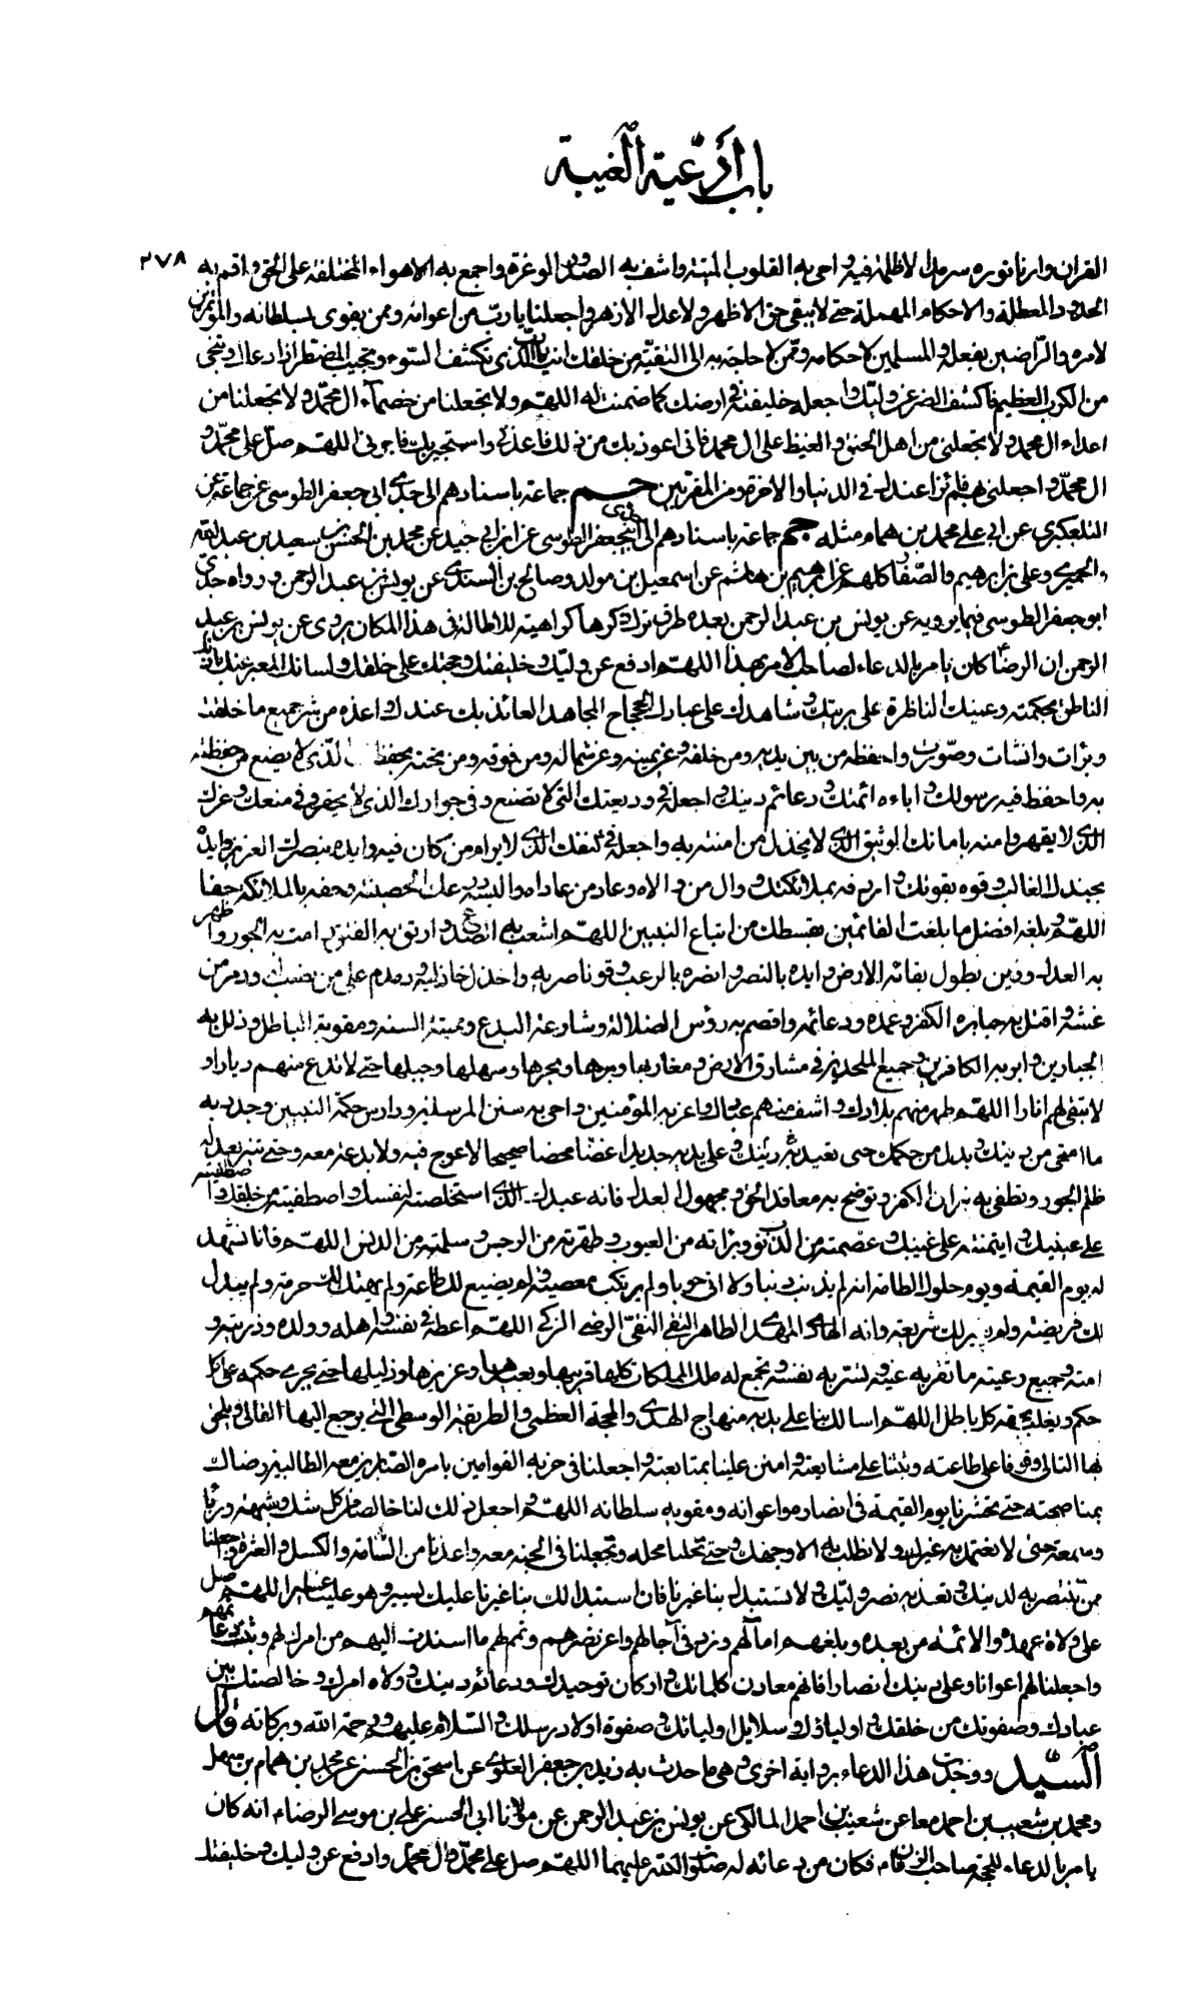 باب أدعية الغيبة
٢٧٨
القران وارنا نوره سرمدا لا ظلمة فيه واحي به القلوب الميتة واشف به الصدور الوغرة واجمع به الاهواء المختلفة على الحق واقم به
الحدود المعطلة والاحكام المهملة حتى لا يبقى حق الا ظهر ولا عدل الا زهر واجعلنا يا رب من اعوانه وممن يقوى بسلطانه والمؤتمرين
لامره والراضين بفعله والمسلمين لاحكامه وممن لا حاجة به الى التقية من خلقك انت يا رب الذي تكشف السوء وتجيب المضطر اذا دعاك وتنجي
من الكرب العظيم فاكشف الضر عن وليك واجعله خليفة في ارضك كما ضمنت له اللهم ولا تجعلنا من خصماء ال محمد ولا تجعلنا من
اعداء ال محمد ولا تجعلني من اهل الحنق والغيظ على ال محمد فاني اعوذ بك من ذلك فاعذني واستجير بك فاجرني اللهم صل على محمد و
ال محمد واجعلني بهم فائزا عندك في الدنيا والاخرة ومن المقربين جم جماعة باسنادهم الى جدي ابي جعفر الطوسي عن جماعة عن
التلعكبري عن ابي علي محمد بن همام مثله جم جماعة باسنادهم الى جدي ابي جعفر الطوسي عن ابن ابي جيد عن محمد بن الحسن بن سعيد بن عبد الله
والحميري وعلي بن ابراهيم والصفار كلهم عن ابراهيم بن هاشم عن اسمعيل بن مولد وصالح بن السندي عن يونس بن عبد الرحمن ورواه جدي
ابو جعفر الطوسي فيما يرويه عن يونس بن عبد الرحمن بعدة طرق تركت ذكرها كراهية للاطالة في هذا المكان يروى عن يونس بن عبد
الرحمن ان الرضا كان يامر بالدعاء لصاحب الامر بهذا اللهم ادفع عن وليك وخليفتك وحجتك على خلقك ولسانك المعبر عنك باذنك
الناطق بحكمتك وعينك الناظرة على بريتك وشاهدك على عبادك الجحجاح المجاهد العائذ بك عندك واعذه من شر جميع ما خلقت
وبرات وانشات وصورت واحفظه من بين يديه ومن خلفه وعن يمينه وعن شماله ومن فوقه ومن تحته بحفظك الذي لا يضيع من حفظته
به واحفظ فيه رسولك واباءه ائمتك ودعائم دينك واجعله في وديعتك التي لا تضيع وفي جوارك الذي لا يخفر وفي منعك وعزك
الذي لا يقهر وامنه بامانك الوثيق الذي لا يخذل من امنته به واجعله في كنفك الذي لا يرام من كان فيه وايده بنصرك العزيز وايده
بجندك الغالب وقوه بقوتك واردفه بملائكتك ووال من والاه وعاد من عاداه والبسه درعك الحصينة وحفه بالملائكة حفا
اللهم وبلغه افضل ما بلغت القائمين بقسطك من اتباع النبيين اللهم اشعب به الصدع وارتق به الفتق وامت به الجور واظهر
به العدل وزين بطول بقائه الارض وايده بالنصر وانصره بالرعب وقو ناصريه واخذل خاذليه ودمدم على من نصب له ودمر من
غشه واقتل به جبابرة الكفر وعمده ودعائمه واقصم به رؤس الضلالة وشارعة البدع ومميتة السنة ومقوية الباطل وذلل به
الجبارين وابر به الكافرين وجميع الملحدين في مشارق الارض ومغاربها وبرها وبحرها وسهلها وجبلها حتى لا تدع منهم ديارا و
لا تبقي لهم اثارا اللهم طهر منهم بلادك واشف منهم عبادك واعز به المؤمنين واحي به سنن المرسلين ودارس حكمة النبيين وجدد به
ما امتحى من دينك وبدل من حكمك حتى تعيد دينك به وعلى يديه جديدا غضا محضا صحيحا لا عوج فيه ولا بدعة معه وحتى تنير بعدله
ظلم الجور وتطفي به نيران الكفر وتوضح به معاقد الحق ومجهول العدل فانه عبدك الذي استخلصته لنفسك واصطفيته من خلقك واصطفيته
على عبادك وايتمنته على غيبك وعصمته من الذنوب وبراته من العيوب وطهرته من الرجس وسلمته من الدنس اللهم فانا نشهد
له يوم القيمة ويوم حلول الطامة انه لم يذنب ذنبا ولا اتى حوبا ولم يرتكب معصية ولم يضيع لك طاعة ولم يهتك لك حرمة ولم يبدل
لك فريضة ولم يغير لك شريعة وانه الهادي المهدي الطاهر التقي النقي الرضي الزكي اللهم اعطه في نفسه واهله وولده وذريته و
امته وجميع رعيته ما تقر به عينه وتسر به نفسه وتجمع له ملك المملكات كلها قريبها وبعيدها وعزيزها وذليلها حتى يجري حكمه على كل
حكم ويغلب بحقه كل باطل اللهم اسالك بنا على يديه منهاج الهدى والمحجة العظمى والطريقة الوسطى التي يرجع اليها الغالي ويلحق
بها التالي وقونا على طاعته وثبتنا على مشايعته وامنن علينا بمتابعته واجعلنا في حزبه القوامين بامره الصابرين معه الطالبين رضاك
بمناصحته حتى تحشرنا يوم القيمة في انصاره واعوانه ومقوية سلطانه اللهم واجعل ذلك لنا خالصا من كل شك وشبهة ورياء
وسمعة حتى لا نعتمد به غيرك ولا نطلب به الا وجهك وحتى تحلنا محله وتجعلنا في الجنة معه واعذنا من السامة والكسل والفترة واجعلنا
ممن تنتصر به لدينك وتعز به نصر وليك ولا تستبدل بنا غيرنا فان استبدالك بنا غيرنا عليك يسير وهو علينا عسير اللهم صل
على ولاة عهده والائمة من بعده وبلغهم امالهم وزد في آجالهم واعز نصرهم وتمم لهم ما اسندت اليهم من امرك لهم وثبت دعائمهم
واجعلنا لهم اعوانا وعلى دينك انصارا فانهم معادن كلماتك واركان توحيدك ودعائم دينك وولاة امرك وخالصتك بين
عبادك وصفوتك من خلقك واولياؤك وسلايل اوليائك وصفوة اولاد رسلك والسلام عليهم ورحمة الله وبركاته وقال
السيد ووجدت هذا الدعاء برواية اخرى وهي ما حدث به زيد بن جعفر العلوي عن اسحق بن الحسن عن محمد بن همام بن سهيل
ومحمد بن شعيب بن احمد معا عن شعيب بن احمد المالكي عن يونس بن عبد الرحمن عن مولانا ابي الحسن علي بن موسى الرضا انه كان
يامر بالدعاء للحجة صاحب الزمان فكان من دعائه له صلوات الله عليهما اللهم صل على محمد وال محمد وادفع عن وليك وخليفتك